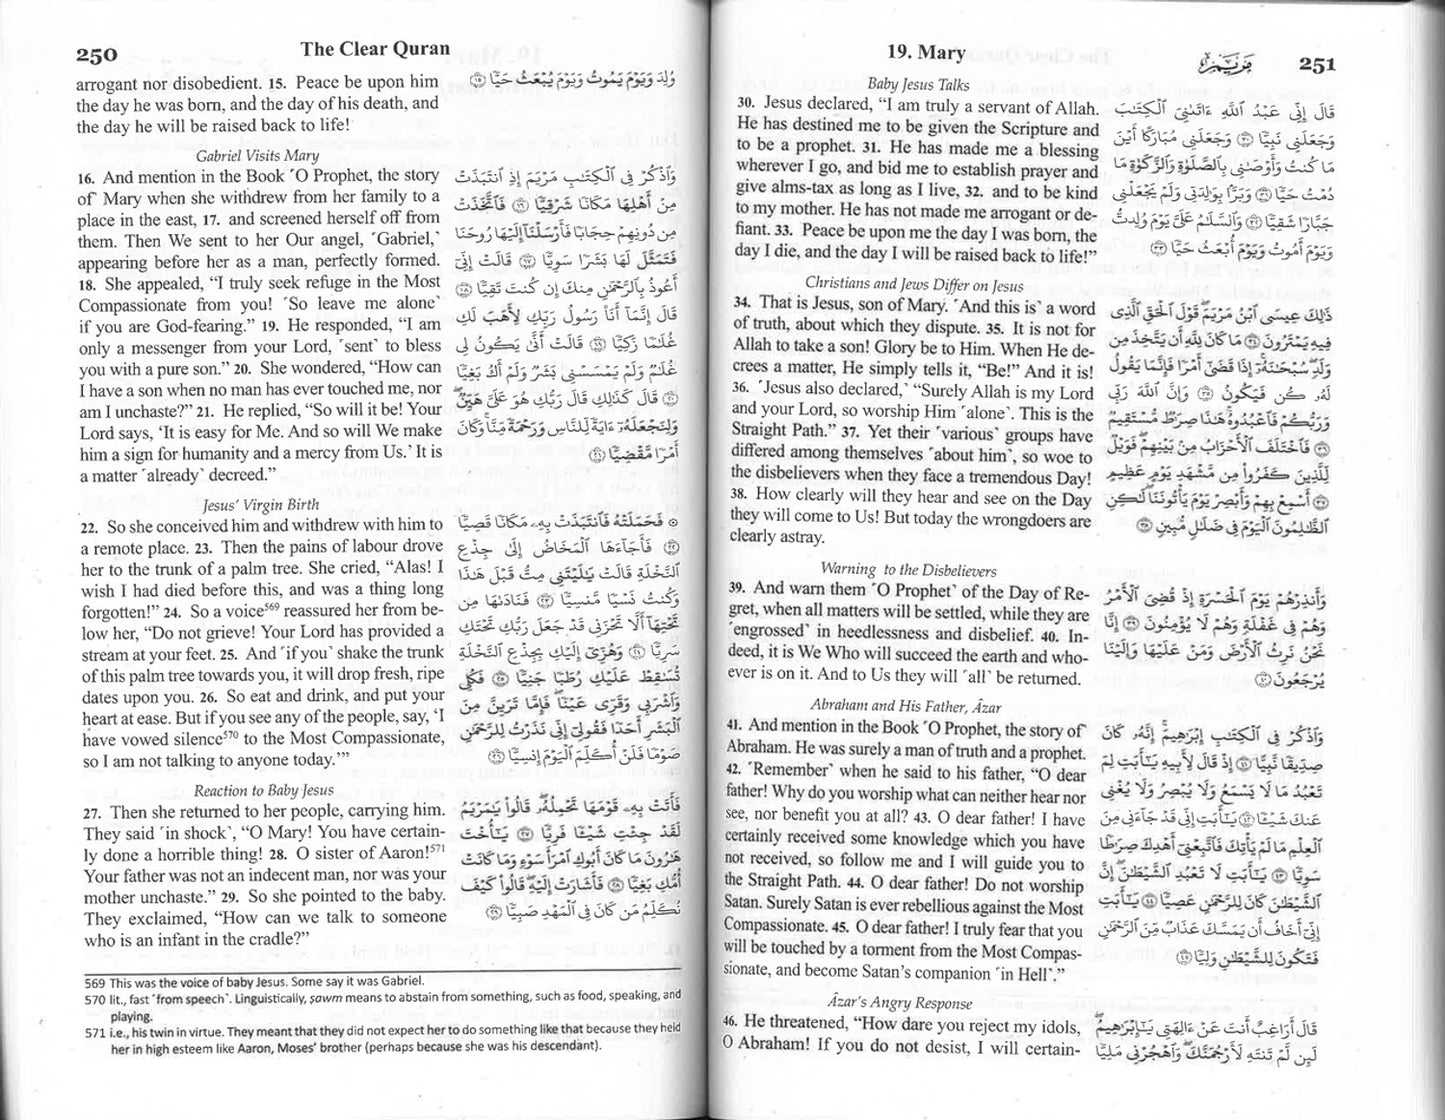 250
The Clear Quran
arrogant nor disobedient. 15. Peace be upon him
the day he was born, and the day of his death, and
the day he will be raised back to life!
وُلِدَ وَيَوْمَ يَمُوتُ وَيَوْمَ يُبْعَثُ حَيًّا ١٥
Gabriel Visits Mary
16. And mention in the Book ˹O Prophet, the story
of˺ Mary when she withdrew from her family to a
place in the east, 17. and screened herself off from
them. Then We sent to her Our angel, ˹Gabriel,˺
appearing before her as a man, perfectly formed.
18. She appealed, “I truly seek refuge in the Most
Compassionate from you! ˹So leave me alone˺
if you are God-fearing.” 19. He responded, “I am
only a messenger from your Lord, ˹sent˺ to bless
you with a pure son.” 20. She wondered, “How can
I have a son when no man has ever touched me, nor
am I unchaste?” 21. He replied, “So will it be! Your
Lord says, ‘It is easy for Me. And so will We make
him a sign for humanity and a mercy from Us.’ It is
a matter ˹already˺ decreed.”
وَٱذْكُرْ فِى ٱلْكِتَـٰبِ مَرْيَمَ إِذِ ٱنتَبَذَتْ
مِنْ أَهْلِهَا مَكَانًا شَرْقِيًّا ١٦ فَٱتَّخَذَتْ
مِن دُونِهِمْ حِجَابًا فَأَرْسَلْنَآ إِلَيْهَا رُوحَنَا
فَتَمَثَّلَ لَهَا بَشَرًا سَوِيًّا ١٧ قَالَتْ إِنِّىٓ
أَعُوذُ بِٱلرَّحْمَـٰنِ مِنكَ إِن كُنتَ تَقِيًّا ١٨
قَالَ إِنَّمَآ أَنَا۠ رَسُولُ رَبِّكِ لِأَهَبَ لَكِ
غُلَـٰمًا زَكِيًّا ١٩ قَالَتْ أَنَّىٰ يَكُونُ لِى
غُلَـٰمٌ وَلَمْ يَمْسَسْنِى بَشَرٌ وَلَمْ أَكُ بَغِيًّا
٢٠ قَالَ كَذَٰلِكِ قَالَ رَبُّكِ هُوَ عَلَىَّ هَيِّنٌ ۖ
وَلِنَجْعَلَهُۥٓ ءَايَةً لِّلنَّاسِ وَرَحْمَةً مِّنَّا ۚ وَكَانَ
أَمْرًا مَّقْضِيًّا ٢١
Jesus’ Virgin Birth
22. So she conceived him and withdrew with him to
a remote place. 23. Then the pains of labour drove
her to the trunk of a palm tree. She cried, “Alas! I
wish I had died before this, and was a thing long
forgotten!” 24. So a voice569 reassured her from be-
low her, “Do not grieve! Your Lord has provided a
stream at your feet. 25. And ˹if you˺ shake the trunk
of this palm tree towards you, it will drop fresh, ripe
dates upon you. 26. So eat and drink, and put your
heart at ease. But if you see any of the people, say, ‘I
have vowed silence570 to the Most Compassionate,
so I am not talking to anyone today.’”
۞ فَحَمَلَتْهُ فَٱنتَبَذَتْ بِهِۦ مَكَانًا قَصِيًّا
٢٢ فَأَجَآءَهَا ٱلْمَخَاضُ إِلَىٰ جِذْعِ
ٱلنَّخْلَةِ قَالَتْ يَـٰلَيْتَنِى مِتُّ قَبْلَ هَـٰذَا
وَكُنتُ نَسْيًا مَّنسِيًّا ٢٣ فَنَادَىٰهَا مِن
تَحْتِهَآ أَلَّا تَحْزَنِى قَدْ جَعَلَ رَبُّكِ تَحْتَكِ
سَرِيًّا ٢٤ وَهُزِّىٓ إِلَيْكِ بِجِذْعِ ٱلنَّخْلَةِ
تُسَـٰقِطْ عَلَيْكِ رُطَبًا جَنِيًّا ٢٥ فَكُلِى
وَٱشْرَبِى وَقَرِّى عَيْنًا ۖ فَإِمَّا تَرَيِنَّ مِنَ
ٱلْبَشَرِ أَحَدًا فَقُولِىٓ إِنِّى نَذَرْتُ لِلرَّحْمَـٰنِ
صَوْمًا فَلَنْ أُكَلِّمَ ٱلْيَوْمَ إِنسِيًّا ٢٦
Reaction to Baby Jesus
27. Then she returned to her people, carrying him.
They said ˹in shock˺, “O Mary! You have certain-
ly done a horrible thing! 28. O sister of Aaron!571
Your father was not an indecent man, nor was your
mother unchaste.” 29. So she pointed to the baby.
They exclaimed, “How can we talk to someone
who is an infant in the cradle?”
فَأَتَتْ بِهِۦ قَوْمَهَا تَحْمِلُهُۥ ۖ قَالُوا۟ يَـٰمَرْيَمُ
لَقَدْ جِئْتِ شَيْـًٔا فَرِيًّا ٢٧ يَـٰٓأُخْتَ
هَـٰرُونَ مَا كَانَ أَبُوكِ ٱمْرَأَ سَوْءٍ وَمَا كَانَتْ
أُمُّكِ بَغِيًّا ٢٨ فَأَشَارَتْ إِلَيْهِ ۖ قَالُوا۟ كَيْفَ
نُكَلِّمُ مَن كَانَ فِى ٱلْمَهْدِ صَبِيًّا ٢٩
569 This was the voice of baby Jesus. Some say it was Gabriel.
570 lit., fast ˹from speech˺. Linguistically, ṣawm means to abstain from something, such as food, speaking, and
playing.
571 i.e., his twin in virtue. They meant that they did not expect her to do something like that because they held
her in high esteem like Aaron, Moses’ brother (perhaps because she was his descendant).
19. Mary
مريم
251
Baby Jesus Talks
30. Jesus declared, “I am truly a servant of Allah.
He has destined me to be given the Scripture and
to be a prophet. 31. He has made me a blessing
wherever I go, and bid me to establish prayer and
give alms-tax as long as I live, 32. and to be kind
to my mother. He has not made me arrogant or de-
fiant. 33. Peace be upon me the day I was born, the
day I die, and the day I will be raised back to life!”
قَالَ إِنِّى عَبْدُ ٱللَّهِ ءَاتَىٰنِىَ ٱلْكِتَـٰبَ
وَجَعَلَنِى نَبِيًّا ٣٠ وَجَعَلَنِى مُبَارَكًا أَيْنَ
مَا كُنتُ وَأَوْصَـٰنِى بِٱلصَّلَوٰةِ وَٱلزَّكَوٰةِ مَا
دُمْتُ حَيًّا ٣١ وَبَرًّۢا بِوَٰلِدَتِى وَلَمْ يَجْعَلْنِى
جَبَّارًا شَقِيًّا ٣٢ وَٱلسَّلَـٰمُ عَلَىَّ يَوْمَ وُلِدتُّ
وَيَوْمَ أَمُوتُ وَيَوْمَ أُبْعَثُ حَيًّا ٣٣
Christians and Jews Differ on Jesus
34. That is Jesus, son of Mary. ˹And this is˺ a word
of truth, about which they dispute. 35. It is not for
Allah to take a son! Glory be to Him. When He de-
crees a matter, He simply tells it, “Be!” And it is!
36. ˹Jesus also declared,˺ “Surely Allah is my Lord
and your Lord, so worship Him ˹alone˺. This is the
Straight Path.” 37. Yet their ˹various˺ groups have
differed among themselves ˹about him˺, so woe to
the disbelievers when they face a tremendous Day!
38. How clearly will they hear and see on the Day
they will come to Us! But today the wrongdoers are
clearly astray.
ذَٰلِكَ عِيسَى ٱبْنُ مَرْيَمَ ۚ قَوْلَ ٱلْحَقِّ ٱلَّذِى
فِيهِ يَمْتَرُونَ ٣٤ مَا كَانَ لِلَّهِ أَن يَتَّخِذَ مِن
وَلَدٍ ۖ سُبْحَـٰنَهُۥٓ ۚ إِذَا قَضَىٰٓ أَمْرًا فَإِنَّمَا يَقُولُ
لَهُۥ كُن فَيَكُونُ ٣٥ وَإِنَّ ٱللَّهَ رَبِّى
وَرَبُّكُمْ فَٱعْبُدُوهُ ۚ هَـٰذَا صِرَٰطٌ مُّسْتَقِيمٌ
٣٦ فَٱخْتَلَفَ ٱلْأَحْزَابُ مِنۢ بَيْنِهِمْ ۖ فَوَيْلٌ
لِّلَّذِينَ كَفَرُوا۟ مِن مَّشْهَدِ يَوْمٍ عَظِيمٍ
٣٧ أَسْمِعْ بِهِمْ وَأَبْصِرْ يَوْمَ يَأْتُونَنَا ۖ لَـٰكِنِ
ٱلظَّـٰلِمُونَ ٱلْيَوْمَ فِى ضَلَـٰلٍ مُّبِينٍ ٣٨
Warning to the Disbelievers
39. And warn them ˹O Prophet˺ of the Day of Re-
gret, when all matters will be settled, while they are
˹engrossed˺ in heedlessness and disbelief. 40. In-
deed, it is We Who will succeed the earth and who-
ever is on it. And to Us they will ˹all˺ be returned.
وَأَنذِرْهُمْ يَوْمَ ٱلْحَسْرَةِ إِذْ قُضِىَ ٱلْأَمْرُ
وَهُمْ فِى غَفْلَةٍ وَهُمْ لَا يُؤْمِنُونَ ٣٩ إِنَّا
نَحْنُ نَرِثُ ٱلْأَرْضَ وَمَنْ عَلَيْهَا وَإِلَيْنَا
يُرْجَعُونَ ٤٠
Abraham and His Father, Âzar
41. And mention in the Book ˹O Prophet, the story of˺
Abraham. He was surely a man of truth and a prophet.
42. ˹Remember˺ when he said to his father, “O dear
father! Why do you worship what can neither hear nor
see, nor benefit you at all? 43. O dear father! I have
certainly received some knowledge which you have
not received, so follow me and I will guide you to
the Straight Path. 44. O dear father! Do not worship
Satan. Surely Satan is ever rebellious against the Most
Compassionate. 45. O dear father! I truly fear that you
will be touched by a torment from the Most Compas-
sionate, and become Satan’s companion ˹in Hell˺.”
وَٱذْكُرْ فِى ٱلْكِتَـٰبِ إِبْرَٰهِيمَ ۚ إِنَّهُۥ كَانَ
صِدِّيقًا نَّبِيًّا ٤١ إِذْ قَالَ لِأَبِيهِ يَـٰٓأَبَتِ لِمَ
تَعْبُدُ مَا لَا يَسْمَعُ وَلَا يُبْصِرُ وَلَا يُغْنِى
عَنكَ شَيْـًٔا ٤٢ يَـٰٓأَبَتِ إِنِّى قَدْ جَآءَنِى مِنَ
ٱلْعِلْمِ مَا لَمْ يَأْتِكَ فَٱتَّبِعْنِىٓ أَهْدِكَ صِرَٰطًا
سَوِيًّا ٤٣ يَـٰٓأَبَتِ لَا تَعْبُدِ ٱلشَّيْطَـٰنَ ۖ إِنَّ
ٱلشَّيْطَـٰنَ كَانَ لِلرَّحْمَـٰنِ عَصِيًّا ٤٤ يَـٰٓأَبَتِ
إِنِّىٓ أَخَافُ أَن يَمَسَّكَ عَذَابٌ مِّنَ ٱلرَّحْمَـٰنِ
فَتَكُونَ لِلشَّيْطَـٰنِ وَلِيًّا ٤٥
Âzar’s Angry Response
46. He threatened, “How dare you reject my idols,
O Abraham! If you do not desist, I will certain-
قَالَ أَرَاغِبٌ أَنتَ عَنْ ءَالِهَتِى يَـٰٓإِبْرَٰهِيمُ ۖ
لَئِن لَّمْ تَنتَهِ لَأَرْجُمَنَّكَ ۖ وَٱهْجُرْنِى مَلِيًّا